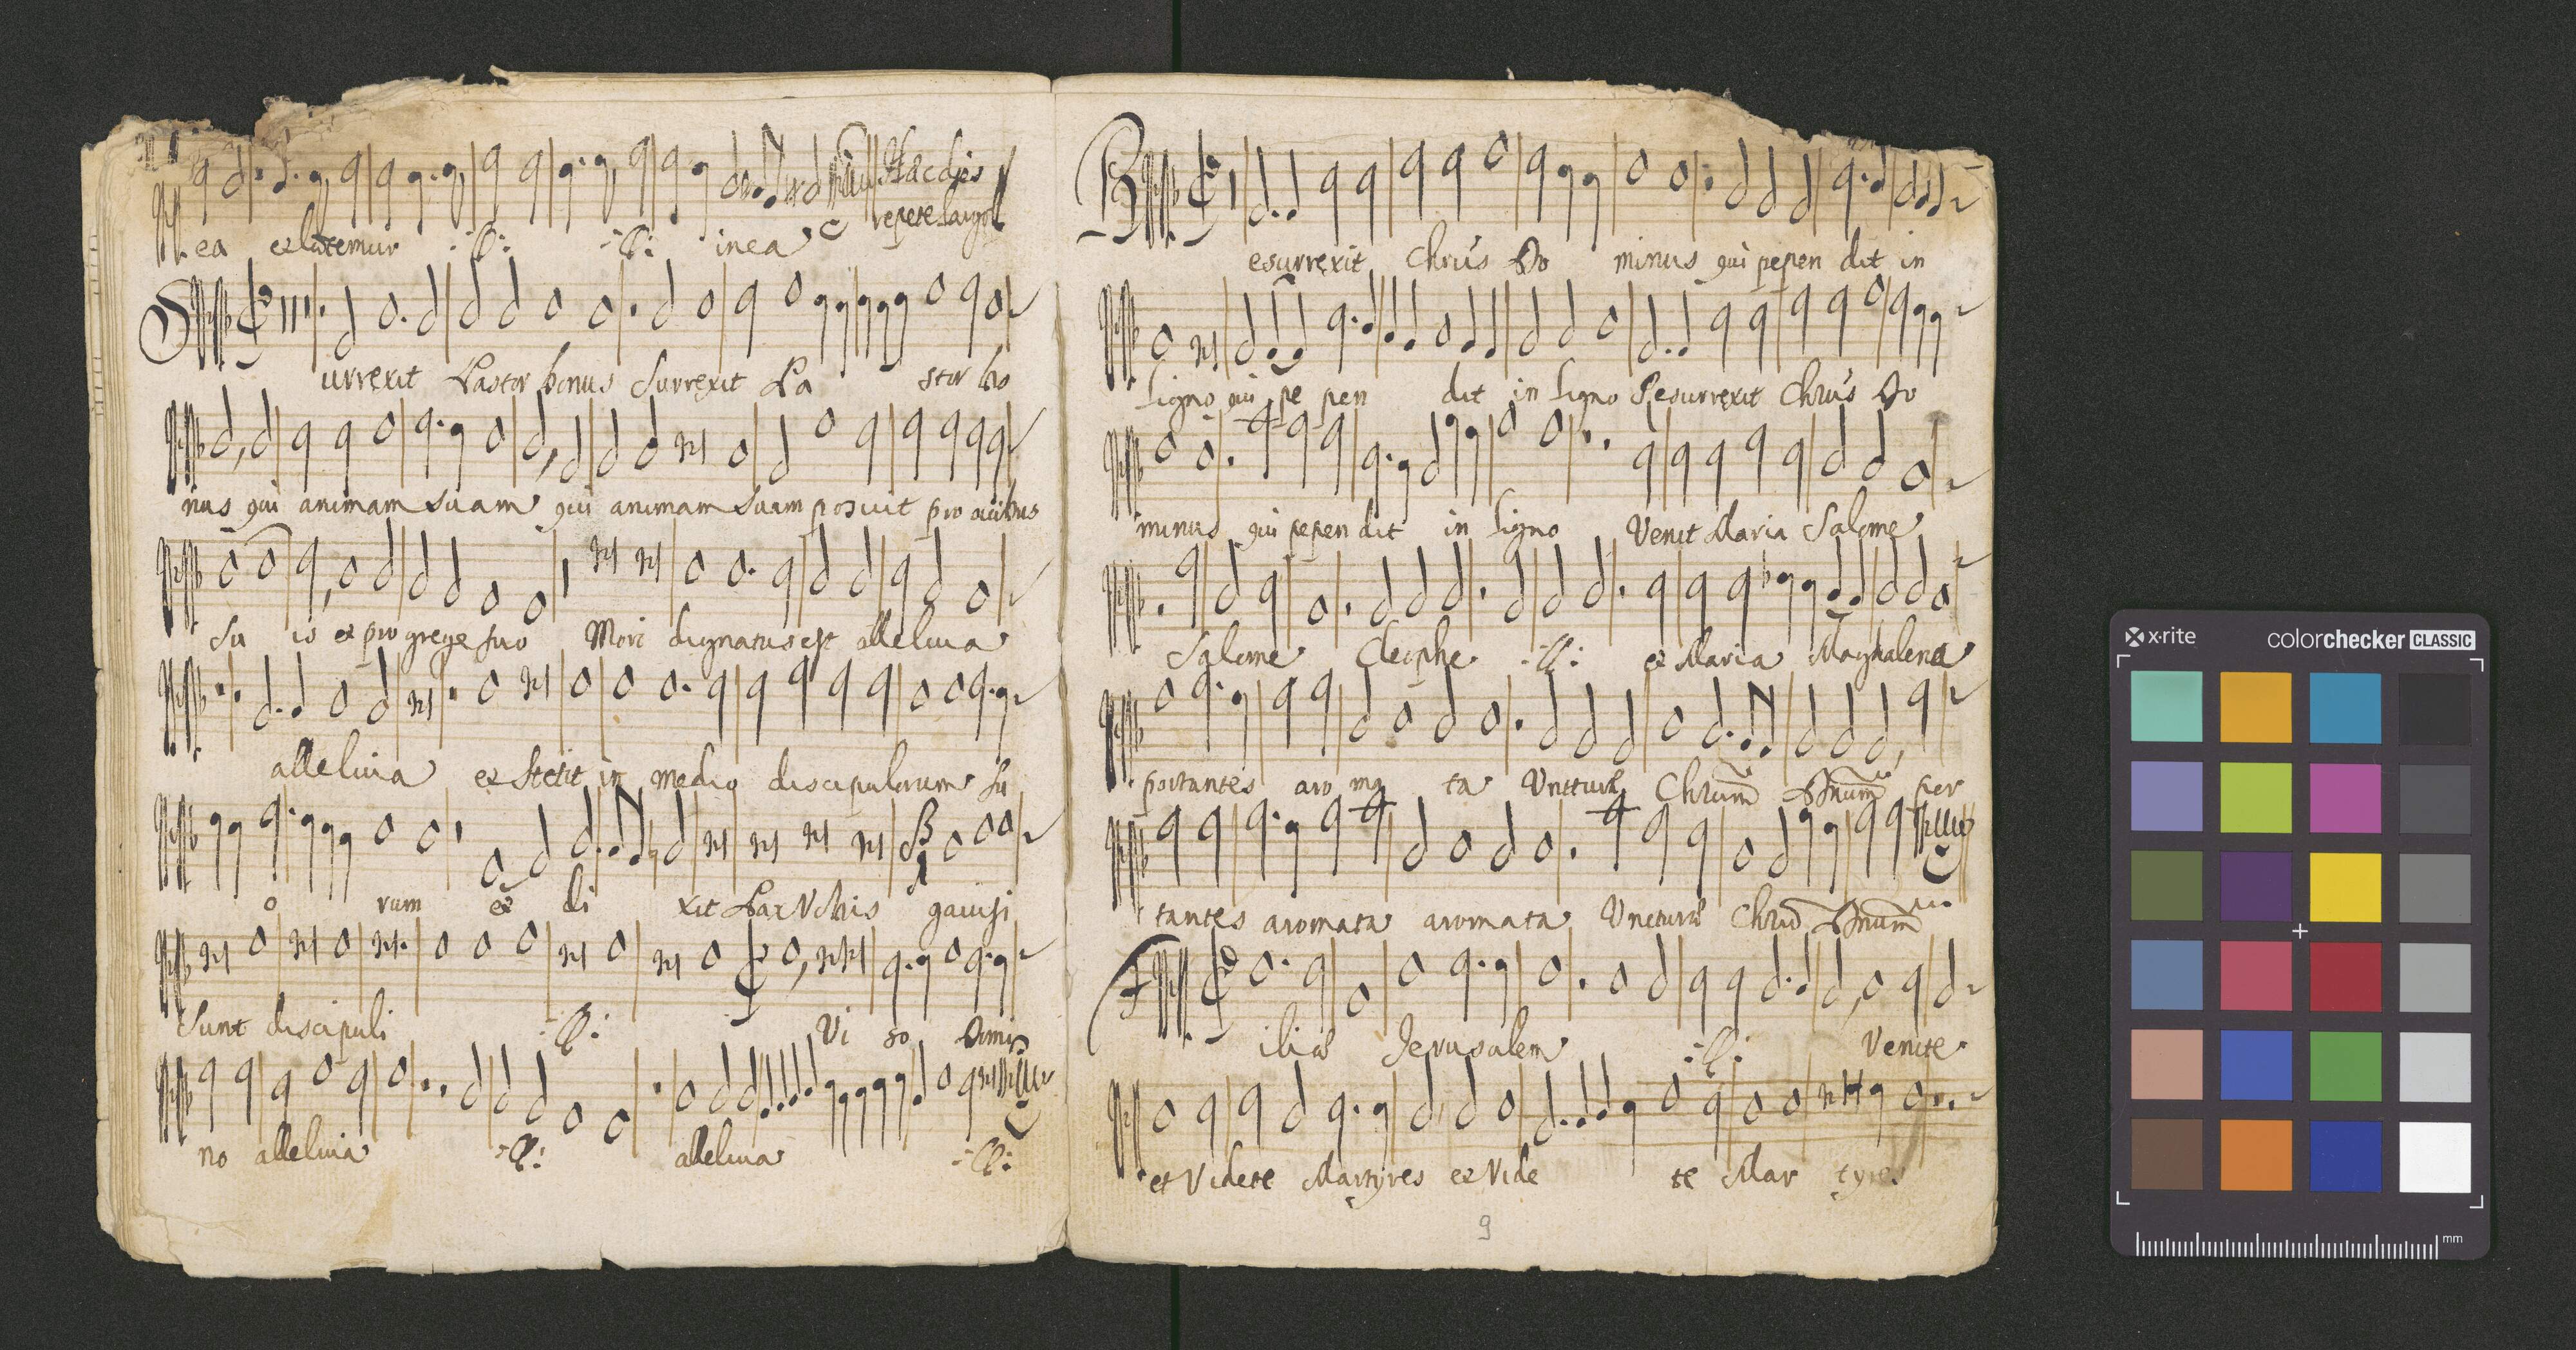 Haec dies
repete largo
ea exlatemur :||: :||: in ea
Surrexit Pastor bonus Surrexit Pa stor bo
nus qui animam suam qui animam suam posuit pro ovibus
su is et pro grege suo Mori dignatus est alleluia
alleluia et Stetit in medio discipulorum su
o rum et di xit Pax Vobis gavisi
Sunt discipuli :||: Viso Domi
no alleluia :||: alleluia :||:
Resurrexit Chrus Do minus qui pepen dit in
ligno qui pe pen dit in ligno Resurrexit Chrus Do
minus qui pepen dit in ligno Venit Maria Salome
Salome Cleophe :||: et Maria Maghalena
portantes aro ma ta Unctura Chrum Dnum por
tantes aromata aromata Unctura Chrum Dnum
Filiae Jerusalem :||: Venite
et Videte Martyres et Vide te Mar tyres
9
x·rite colorchecker CLASSIC
mm